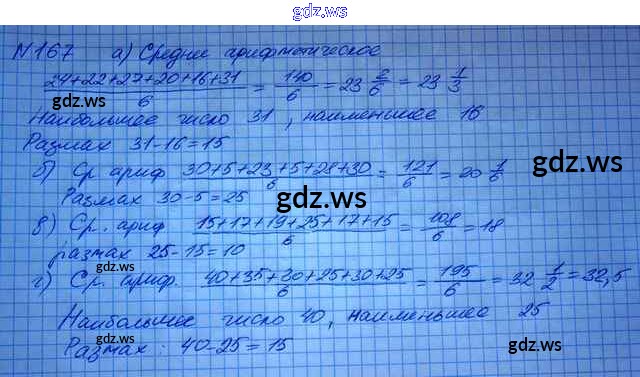 gdz.ws
№167 а) Среднее арифметическое
24+22+27+20+16+31/6 = 140/6 = 23 2/6 = 23 1/3
gdz.ws
Наибольшее число 31, наименьшее 16
Размах 31-16=15
gdz.ws
б) Ср. ариф 30+5+23+5+28+30/6 = 121/6 = 20 1/6
Размах 30-5=25
gdz.ws
в) Ср. ариф 15+17+19+25+17+15/6 = 108/6 = 18
размах 25-15=10
gdz.ws
г) Ср. ариф. 40+35+30+25+30+25/6 = 195/6 = 32 1/2 = 32,5
Наибольшее число 40, наименьшее 25
Размах: 40-25=15
gdz.ws
gdz.ws